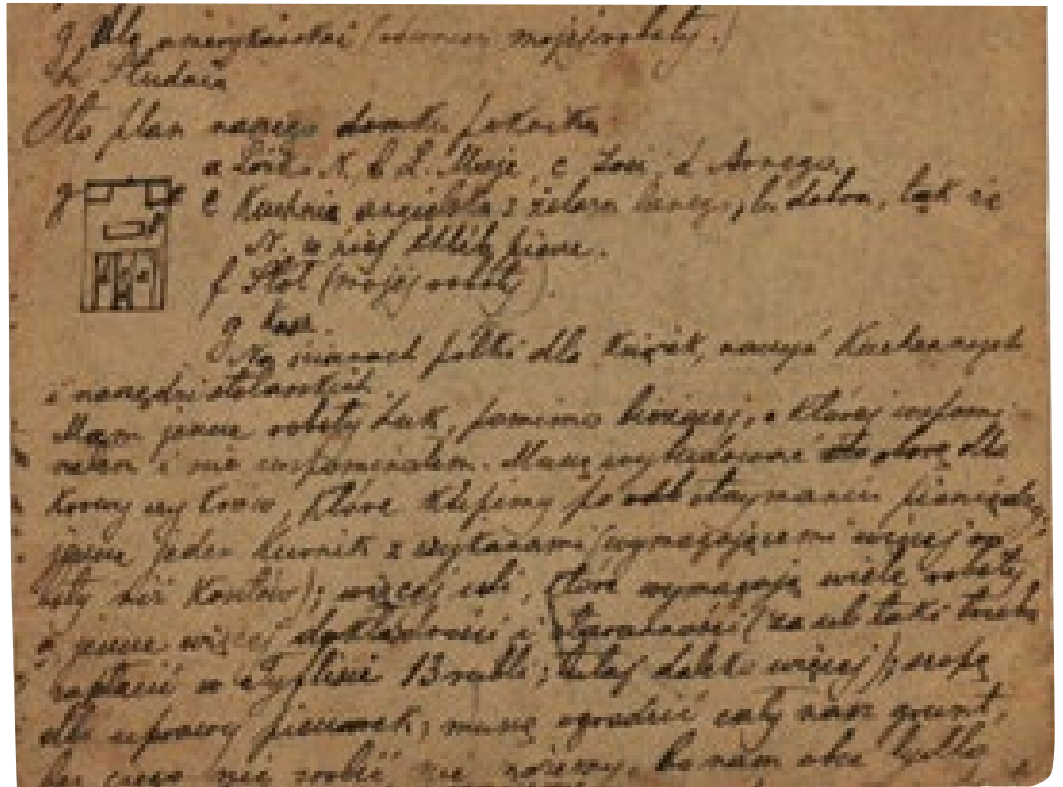 g Ule amerykański (również mojej roboty.)
h Studnia
Oto plan naszego domku
a Łóżko K, b Ł. Moje, c Zosi, d
e Kuchnia angielska z żelaza lanego, b. dobra, tak że
N. w niej chléb piecze.
f Stół (mojej roboty).
g
Na ścianach półki dla książek, naczyń kuchennych
i narzędzi stolarskich.
Mam jeszcze roboty huk, pomimo bieżącej, o której wspomi-
nałem i nie wspominałem. Muszę wybudować oborę dla
krowy czy krów, które kupimy po otrzymaniu pieniędzy,
jeszcze jeden kurnik z (wymagającemi więcej ro-
boty niż kosztów); więcej uli, które wymagają wiele roboty,
a jeszcze więcej dokładności i staranności (za ul taki trzeba
zapłacić w Tyflisie 13 rubli; tutaj daleko więcej); szopę
dla uprawy pieczarek; muszę ogrodzić cały nasz grunt,
bez czego nic robić nie możemy, bo nam obce bydło